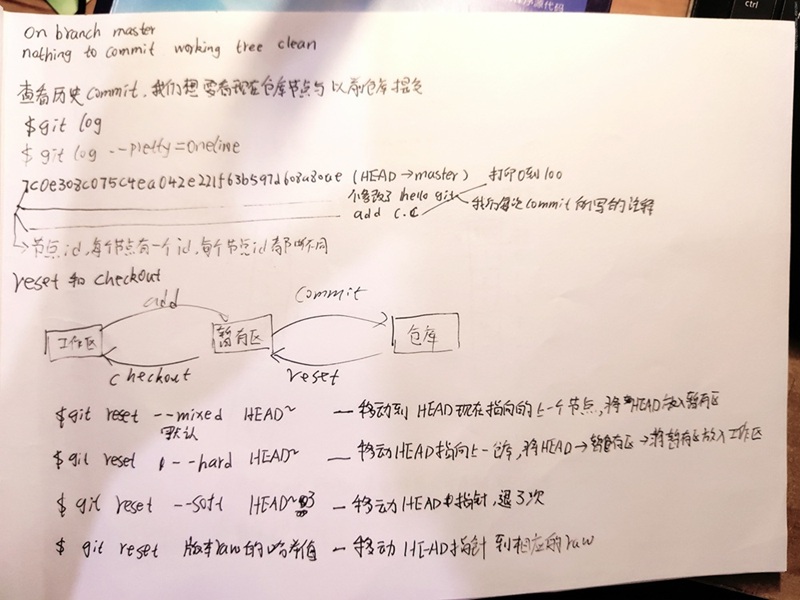 源代码
ctrl
On branch master
nothing to commit working tree clean
查看历史commit.我们想要看现在仓库节点与以前仓库提交
$git log
$ git log --pretty=oneline
7c0e308c075c4ea042e221f63b597d608a80ae (HEAD→master) 打印0到100
修改了 hello git 我们每次commit所写的注释
add c.c
→节点id,每个节点有一个id,每个节点id都不同
reset 和 checkout
add commit
工作区 暂存区 仓库
checkout reset
$git reset --mixed HEAD~ —移动到HEAD现在指向的上一个节点,将HEAD放入暂存区
默认
$git reset --hard HEAD~ —移动HEAD指向上一仓库,将HEAD→暂存区→将暂存区放入工作区
$ git reset --soft HEAD~3 —移动HEAD指针,退3次
$ git reset 版本raw的哈希值 —移动HEAD指针到相应的raw